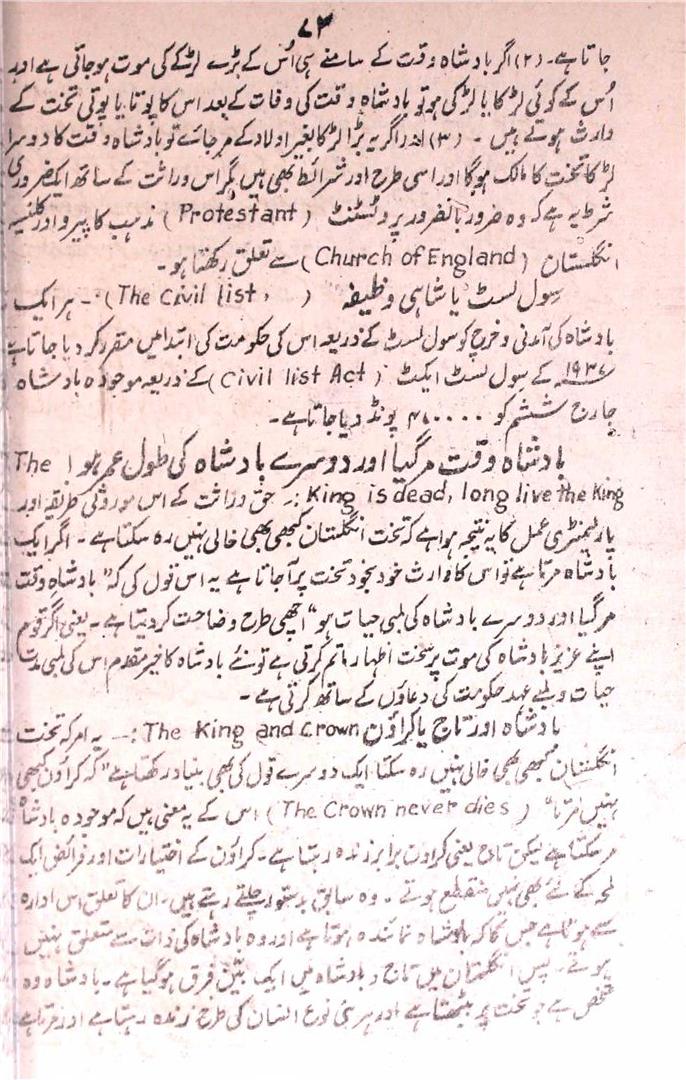 ۷۳
جاتا ہے۔ (۲) اگر بادشاہ وقت کے سامنے ہی اُس کے بڑے لڑکے کی موت ہو جاتی ہے اور
اُس کے کوئی لڑکا یا لڑکی ہو تو بادشاہ وقت کی وفات کے بعد اس کا پوتا یا پوتی تخت کے
وارث ہوتے ہیں ۔ (۳) اور اگر یہ بڑا لڑکا بغیر اولاد کے مر جائے تو بادشاہ وقت کا دوسرا
لڑکا تخت کا مالک ہوگا اور اسی طرح اور شرائط بھی ہیں مگر اس وراثت کے ساتھ ایک ضروری
شرط یہ ہے کہ وہ ضرور بالضرور پروٹسٹنٹ (Protestant) مذہب کا پیرو اور کلیسیہ
انگلستان (Church of England) سے تعلق رکھتا ہو۔
سول لسٹ یا شاہی وظیفہ (The Civil list) ۔ ہر ایک
بادشاہ کی آمدنی و خرچ کو سول لسٹ کے ذریعہ اس کی حکومت کی ابتدا میں مقرر کر دیا جاتا ہے
۱۹۳۷ء کے سول لسٹ ایکٹ (Civil list Act) کے ذریعہ موجودہ بادشاہ
جارج ششم کو ۴۱۰۰۰۰ پونڈ دیا جاتا ہے۔
بادشاہ وقت مر گیا اور دوسرے بادشاہ کی طول عمر ہو! The
King is dead, long live the King :۔ حق وراثت کے اس موروثی طریقہ اور
پارلیمنٹری عمل کا یہ نتیجہ ہوا ہے کہ تخت انگلستان کبھی بھی خالی نہیں رہ سکتا ہے ۔ اگر ایک
بادشاہ مرتا ہے تو اس کا وارث خود بخود تخت پر آجاتا ہے یہ اس قول کی کہ "بادشاہ وقت
مر گیا اور دوسرے بادشاہ کی لمبی حیات ہو" اچھی طرح وضاحت کر دیتا ہے ۔ یعنی اگر قوم
اپنے عزیز بادشاہ کی موت پر سخت اظہار ماتم کرتی ہے تو نئے بادشاہ کا خیر مقدم اس کی لمبی مدت
حیات و لمبے عہد حکومت کی دعاؤں کے ساتھ کرتی ہے ۔
بادشاہ اور تاج یا کراؤن The King and Crown :۔ یہ امر کہ تخت
انگلستان کبھی بھی خالی نہیں رہ سکتا ایک دوسرے قول کی بھی بنیاد رکھتا ہے "کہ کراؤن کبھی
نہیں مرتا" (The Crown never dies) اس کے یہ معنی ہیں کہ موجودہ بادشاہ
مر سکتا ہے لیکن تاج یعنی کراؤن برابر زندہ رہتا ہے ۔ کراؤن کے اختیارات اور فرائض ایک
لمحہ کے لئے بھی نہیں منقطع ہوتے ۔ وہ سابق بدستور چلتے رہتے ہیں ۔ ان کا تعلق اس ادارہ
سے ہوتا ہے جس کا کہ بادشاہ نمائندہ ہوتا ہے اور وہ بادشاہ کی ذات سے متعلق نہیں
ہوتے ۔ پس انگلستان میں تاج و بادشاہ میں ایک بیّن فرق ہو گیا ہے ۔ بادشاہ وہ
شخص ہے جو تخت پر بیٹھتا ہے اور ہر بنی نوع انسان کی طرح زندہ رہتا ہے اور مرتا ہے